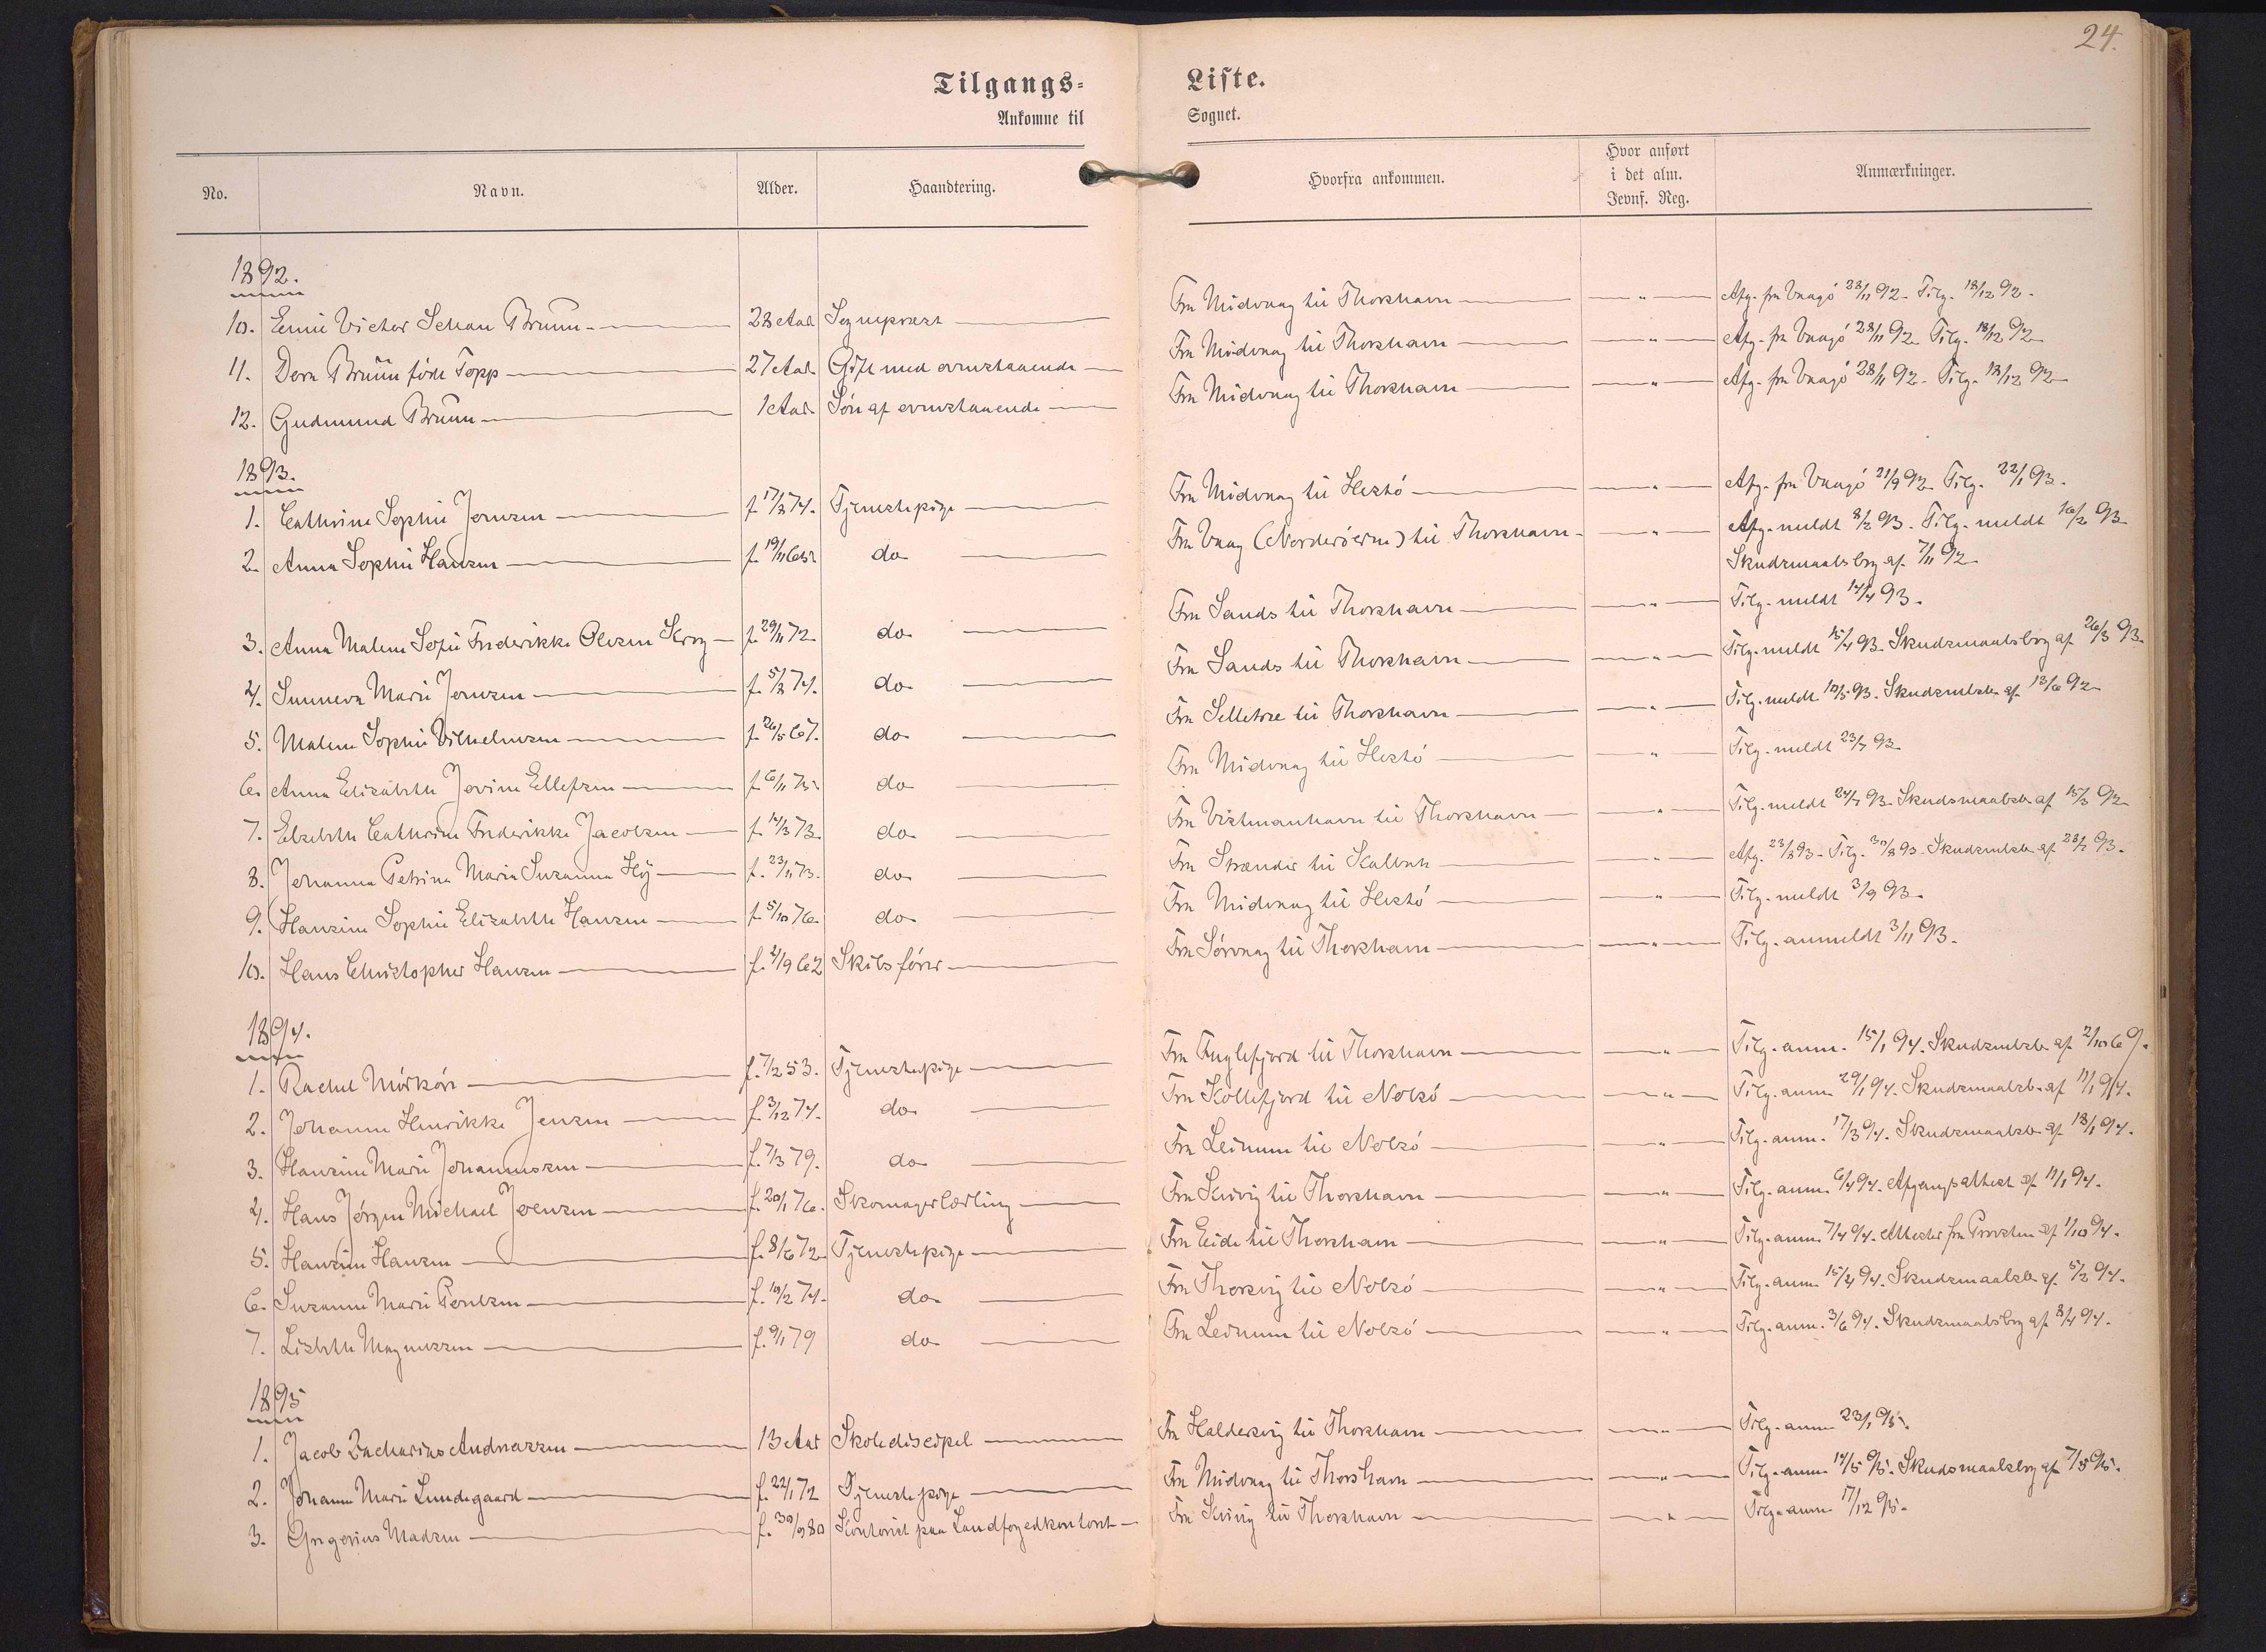 24.
Tilgangs- Liste.
Ankomne til Sognet.
No. Navn. Alder. Haandtering. Hvorfra ankommen. Hvor anført i det alm. Jevnf. Reg. Anmærkninger.
1892.
10. Emil Victor Schau Bruun 28 Aar Sognepræst Fra Midvaag til Thorshavn " Afg. fra Vaagö 28/11 92. Tilg. 18/12 92.
11. Dora Bruun föde Topp 27 Aar Gift med ovenstaaende Fra Midvaag til Thorshavn " Afg. fra Vaagö 28/11 92. Tilg. 18/12 92
12. Gudmund Bruun 1 Aar Sön af ovenstaaende Fra Midvaag til Thorshavn " Afg. fra Vaagö 28/11 92. Tilg. 18/12 92
1893.
1. Cathrine Sophie Joensen f. 17/8 74. Tjenestepige Fra Midvaag til Hestö " Afg. fra Vaagö 21/9 92. Tilg. 22/1 93.
2. Anna Sophie Hansen f. 19/11 65 do Fra Vaag (Norderöerne) til Thorshavn " Afg. meldt 8/2 93. Tilg. meldt 16/2 93
Skudsmaalsbog af 7/11 92
3. Anna Malene Sofie Frederikke Olesen f. 29/11 72 do Fra Sands til Thorshavn " Tilg. meldt 14/4 93.
4. Sunneva Marie Joensen f. 5/8 74. do Fra Sands til Thorshavn " Tilg. meldt 15/4 93. Skudsmaalsbog af 26/3 93.
5. Malene Sophie Vilhelmsen f. 26/5 67. do Fra Selletræ til Thorshavn " Tilg. meldt 10/5 93. Skudsmlsb. af 13/6 92
6. Anna Elisabeth Jovine Ellefsen f. 6/11 75 do Fra Midvaag til Hestö " Tilg. meldt 23/7 93
7. Elsebeth Cathrine Frederikke Jacobsen f. 14/3 73. do Fra Vestmanhavn til Thorshavn " Tilg. meldt 24/7 93. Skudsmaalsb. af 15/3 92
8. Johanna Petrina Maria Susanna Höj f. 23/11 73. do Fra Strænder til Kalbak " Afg. 23/8 93. Tilg. 30/8 93. Skudsmlsb. af 28/7 93.
9. Hansine Sophie Elisabeth Hansen f. 5/10 76. do Fra Midvaag til Hestö " Tilg. meldt 3/9 93.
10. Hans Christopher Hansen f. 2/9 62 Skibsförer Fra Sörvaag til Thorshavn " Tilg. anmeldt 3/11 93.
1894.
1. Rachel Mörköre f. 7/2 53. Tjenestepige Fra Fuglefjord til Thorshavn " Tilg. anm. 15/1 94. Skudsmlsb. af 2/10 69.
2. Johanne Henrikke Jensen f. 3/12 74. do Fra Kollefjord til Nolsö " Tilg. anm. 29/1 94. Skudsmaalsb. af 11/1 94.
3. Hansine Marie Johannesen f. 7/3 79. do Fra Leinum til Nolsö " Tilg. anm. 17/3 94. Skudsmaalsb. af 18/1 94.
4. Hans Jörgen Michael Joensen f. 20/1 76. Skomagerlærling Fra Kvivig til Thorshavn " Tilg. anm. 6/4 94. Afgangsattest af 11/1 94.
5. Hansine Hansen f. 8/6 72 Tjenestepige Fra Eide til Thorshavn " Tilg. anm. 7/4 94. Attester fra Provsten af 1/10 94.
6. Susanne Marie Poulsen f. 10/2 74. do Fra Thorsvig til Nolsö " Tilg. anm. 15/4 94. Skudsmaalsb. af 5/2 94.
7. Lisbeth Magnussen f. 9/1 79 do Fra Leinum til Nolsö " Tilg. anm. 3/6 94. Skudsmaalsbog af 8/4 94.
1895
1. Jacob Zacharias Andreassen 13 Aar Skolediscipel Fra Haldersvig til Thorshavn " Tilg. anm 23/1 95.
2. Johanne Marie Lundsgaard f. 22/1 72 Tjenestepige Fra Midvaag til Thorshavn " Tilg. anm. 14/5 95. Skudsmaalsbog af 7/5 95.
3. Gregorius Madsen f. 30/9 80 Kontorist paa Landfogedkontoret Fra Kvivig til Thorshavn " Tilg. anm 17/12 95.